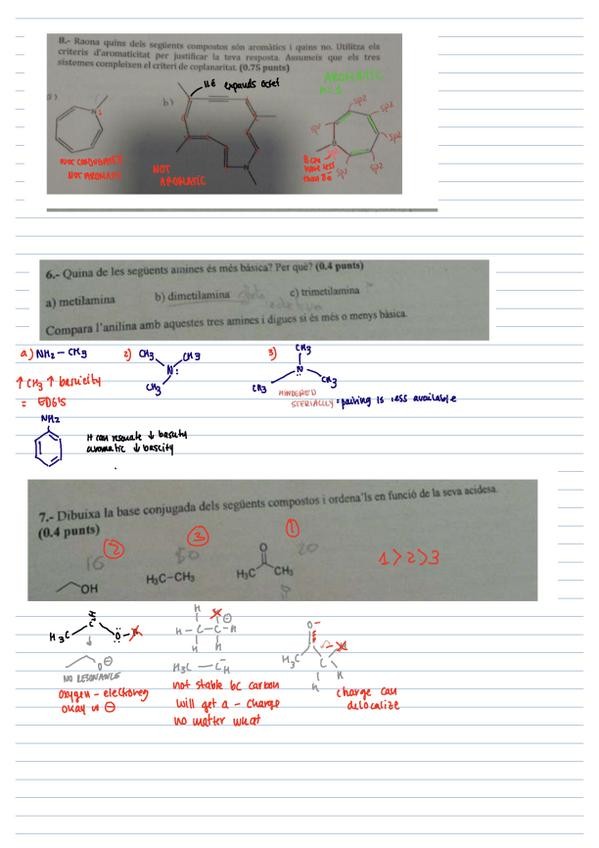 8.- Raona quins dels següents compostos són aromàtics i quins no. Utilitza els
criteris d'aromaticitat per justificar la teva resposta. Assumeix que els tres
sistemes compleixen el criteri de coplanaritat. (0.75 punts)
11 é expands octet
AROMATIC
b)
N
N
NOT CONJUGATED
NOT AROMATIC
NOT
AROMATIC
B can
have less
than 8é
sp2
sp2
sp2
sp2
sp2
6.- Quina de les següents amines és més bàsica? Per què? (0.4 punts)
a) metilamina
b) dimetilamina
c) trimetilamina
Compara l'anilina amb aquestes tres amines i digues si és més o menys bàsica.
a) NH2 - CH3
2) CH3 CH3
N:
CH3
3) CH3
N
CH3 CH3
↑ CH3 ↑ basicity
= EDG's
HINDERED
STERICALLY = pairing is less available
NH2
it can resonate ↓ basicity
aromatic ↓ bascity
7.- Dibuixa la base conjugada dels següents compostos i ordena'ls en funció de la seva acidesa.
(0.4 punts)
16
2
50
3
20
1
OH
H3C-CH3
O
H3C CH3
1 > 2 > 3
H3C
O
NO RESONANCE
oxygen - electroneg
okay w ⊖
H ⊖
H - C - C - H
H H
H3C - CH
not stable bc carbon
will get a - charge
no matter what
O-
H3C
H
charge can
delocalize